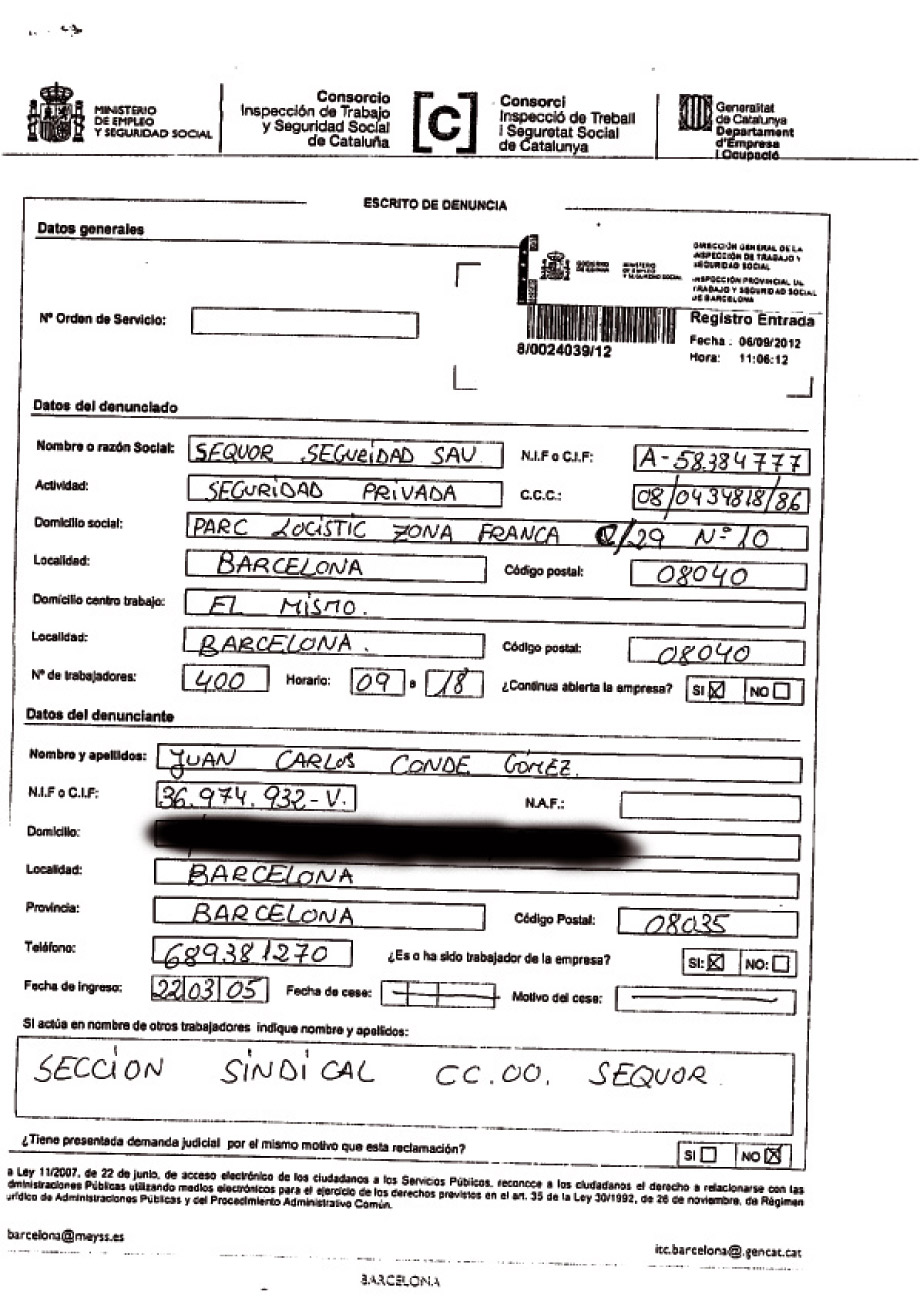 MINISTERIO
DE EMPLEO
Y SEGURIDAD SOCIAL
Consorcio
Inspección de Trabajo
y Seguridad Social
de Cataluña
[C]
Consorci
Inspecció de Treball
i Seguretat Social
de Catalunya
Generalitat
de Catalunya
Departament
d'Empresa
i Ocupació
ESCRITO DE DENUNCIA
Datos generales
GOBIERNO
DE ESPAÑA
MINISTERIO
DE EMPLEO
Y SEGURIDAD SOCIAL
DIRECCIÓN GENERAL DE LA
INSPECCIÓN DE TRABAJO Y
SEGURIDAD SOCIAL
INSPECCIÓN PROVINCIAL DE
TRABAJO Y SEGURIDAD SOCIAL
DE BARCELONA
Nº Orden de Servicio:
8/0024039/12
Registro Entrada
Fecha : 06/09/2012
Hora: 11:06:12
Datos del denunciado
Nombre o razón Social: SEQUOR SEGURIDAD SAU N.I.F o C.I.F: A-58384777
Actividad: SEGURIDAD PRIVADA C.C.C.: 08/0434818/86
Domicilio social: PARC LOGISTIC ZONA FRANCA C/29 Nº 10
Localidad: BARCELONA Código postal: 08040
Domicilio centro trabajo: EL MISMO.
Localidad: BARCELONA. Código postal: 08040
Nº de trabajadores: 400 Horario: 09 a 18 ¿Continua abierta la empresa? SI ☒ NO ☐
Datos del denunciante
Nombre y apellidos: JUAN CARLOS CONDE GÓMEZ.
N.I.F o C.I.F: 36.974.932-V. N.A.F.:
Domicilio:
Localidad: BARCELONA
Provincia: BARCELONA Código Postal: 08035
Teléfono: 689381270 ¿Es o ha sido trabajador de la empresa? SI: ☒ NO: ☐
Fecha de ingreso: 22 03 05 Fecha de cese: Motivo del cese:
Si actúa en nombre de otros trabajadores indique nombre y apellidos:
SECCIÓN SINDICAL CC.OO. SEQUOR
¿Tiene presentada demanda judicial por el mismo motivo que esta reclamación? SI ☐ NO ☒
a Ley 11/2007, de 22 de junio, de acceso electrónico de los ciudadanos a los Servicios Públicos, reconoce a los ciudadanos el derecho a relacionarse con las
dministraciones Públicas utilizando medios electrónicos para el ejercicio de los derechos previstos en el art. 35 de la Ley 30/1992, de 26 de noviembre, de Régimen
urídico de Administraciones Públicas y del Procedimiento Administrativo Común.
barcelona@meyss.es
itc.barcelona@.gencat.cat
BARCELONA